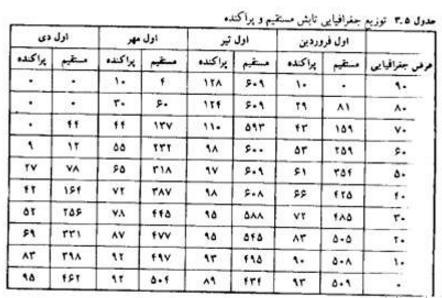 جدول ۳.۵ توزیع جغرافیایی تابش مستقیم و پراکنده
عرض جغرافیایی اول فروردین اول تیر اول مهر اول دی
مستقیم پراکنده مستقیم پراکنده مستقیم پراکنده مستقیم پراکنده
۹۰ ۰ ۱۰ ۶۰۹ ۱۲۸ ۴ ۱۰ ۰ ۰
۸۰ ۸۱ ۲۹ ۶۰۹ ۱۲۴ ۶۰ ۳۰ ۰ ۰
۷۰ ۱۵۹ ۴۳ ۵۹۳ ۱۱۰ ۱۳۷ ۴۴ ۴۴ ۰
۶۰ ۲۵۹ ۵۳ ۶۰۰ ۹۸ ۲۳۲ ۵۵ ۱۲ ۹
۵۰ ۳۵۴ ۶۱ ۶۰۹ ۹۷ ۳۱۸ ۶۵ ۷۸ ۲۷
۴۰ ۴۲۵ ۶۶ ۶۰۸ ۹۸ ۳۸۷ ۷۲ ۱۶۴ ۴۲
۳۰ ۴۸۵ ۷۲ ۵۸۸ ۹۵ ۴۴۵ ۷۸ ۲۵۶ ۵۲
۲۰ ۵۰۵ ۸۳ ۵۴۵ ۹۵ ۴۷۷ ۸۷ ۳۳۱ ۶۹
۱۰ ۵۰۸ ۹۰ ۴۹۵ ۹۳ ۴۹۷ ۹۲ ۳۹۸ ۸۳
۰ ۵۰۹ ۹۳ ۴۳۴ ۸۹ ۵۰۴ ۹۲ ۴۶۲ ۹۵